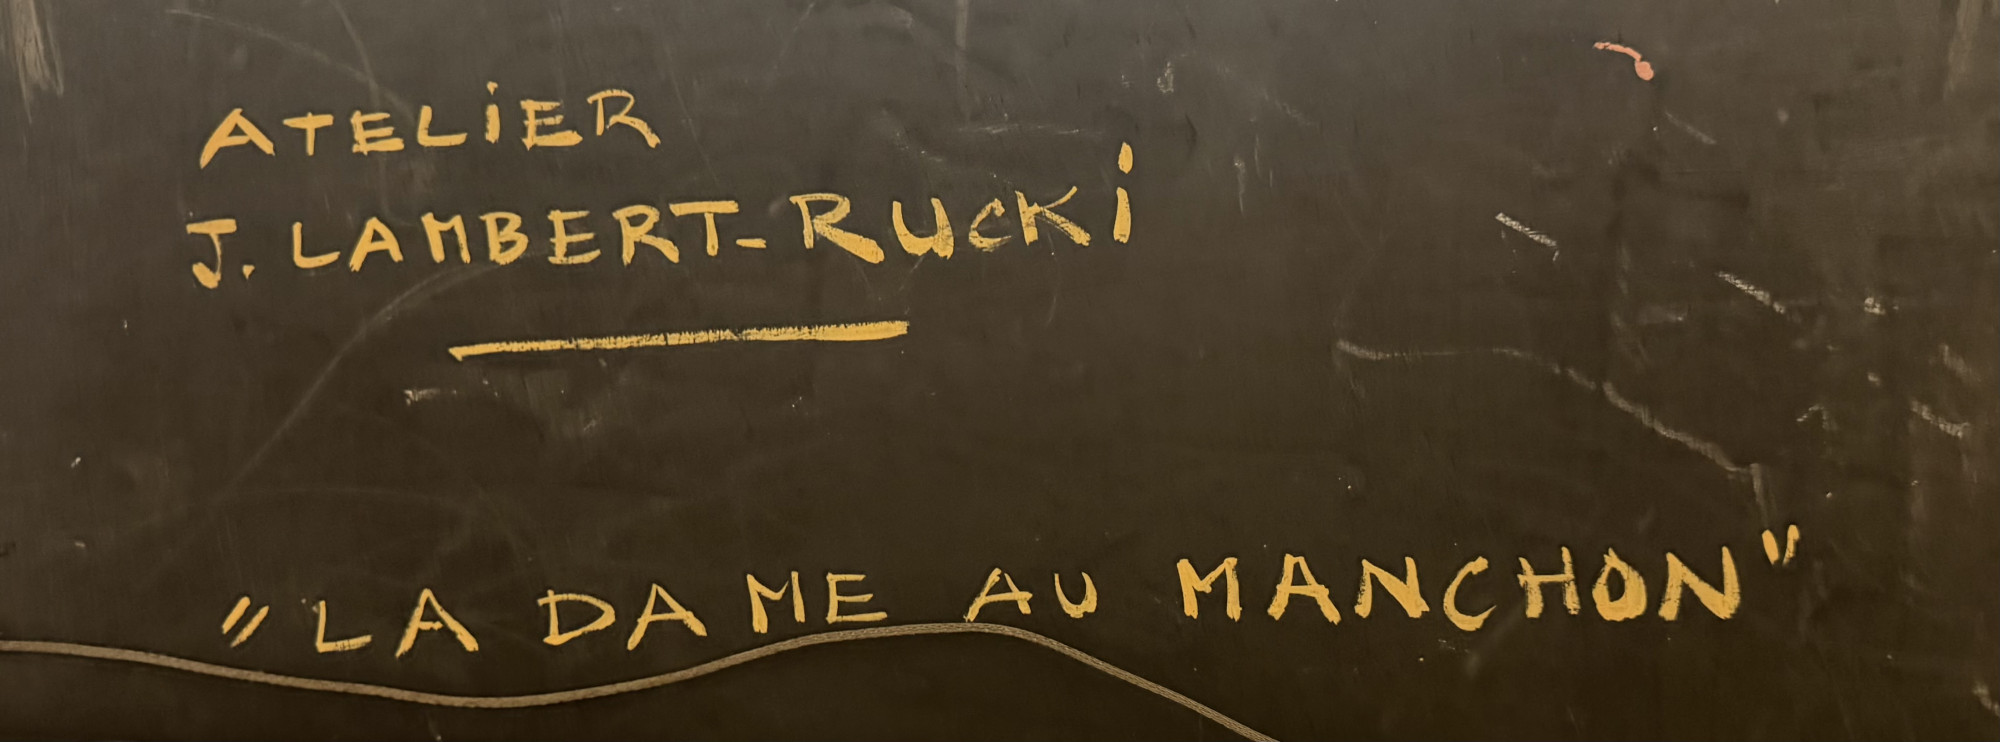 ATELiER
J. LAMBERT-RUCKi
"LA DAME AU MANCHON"